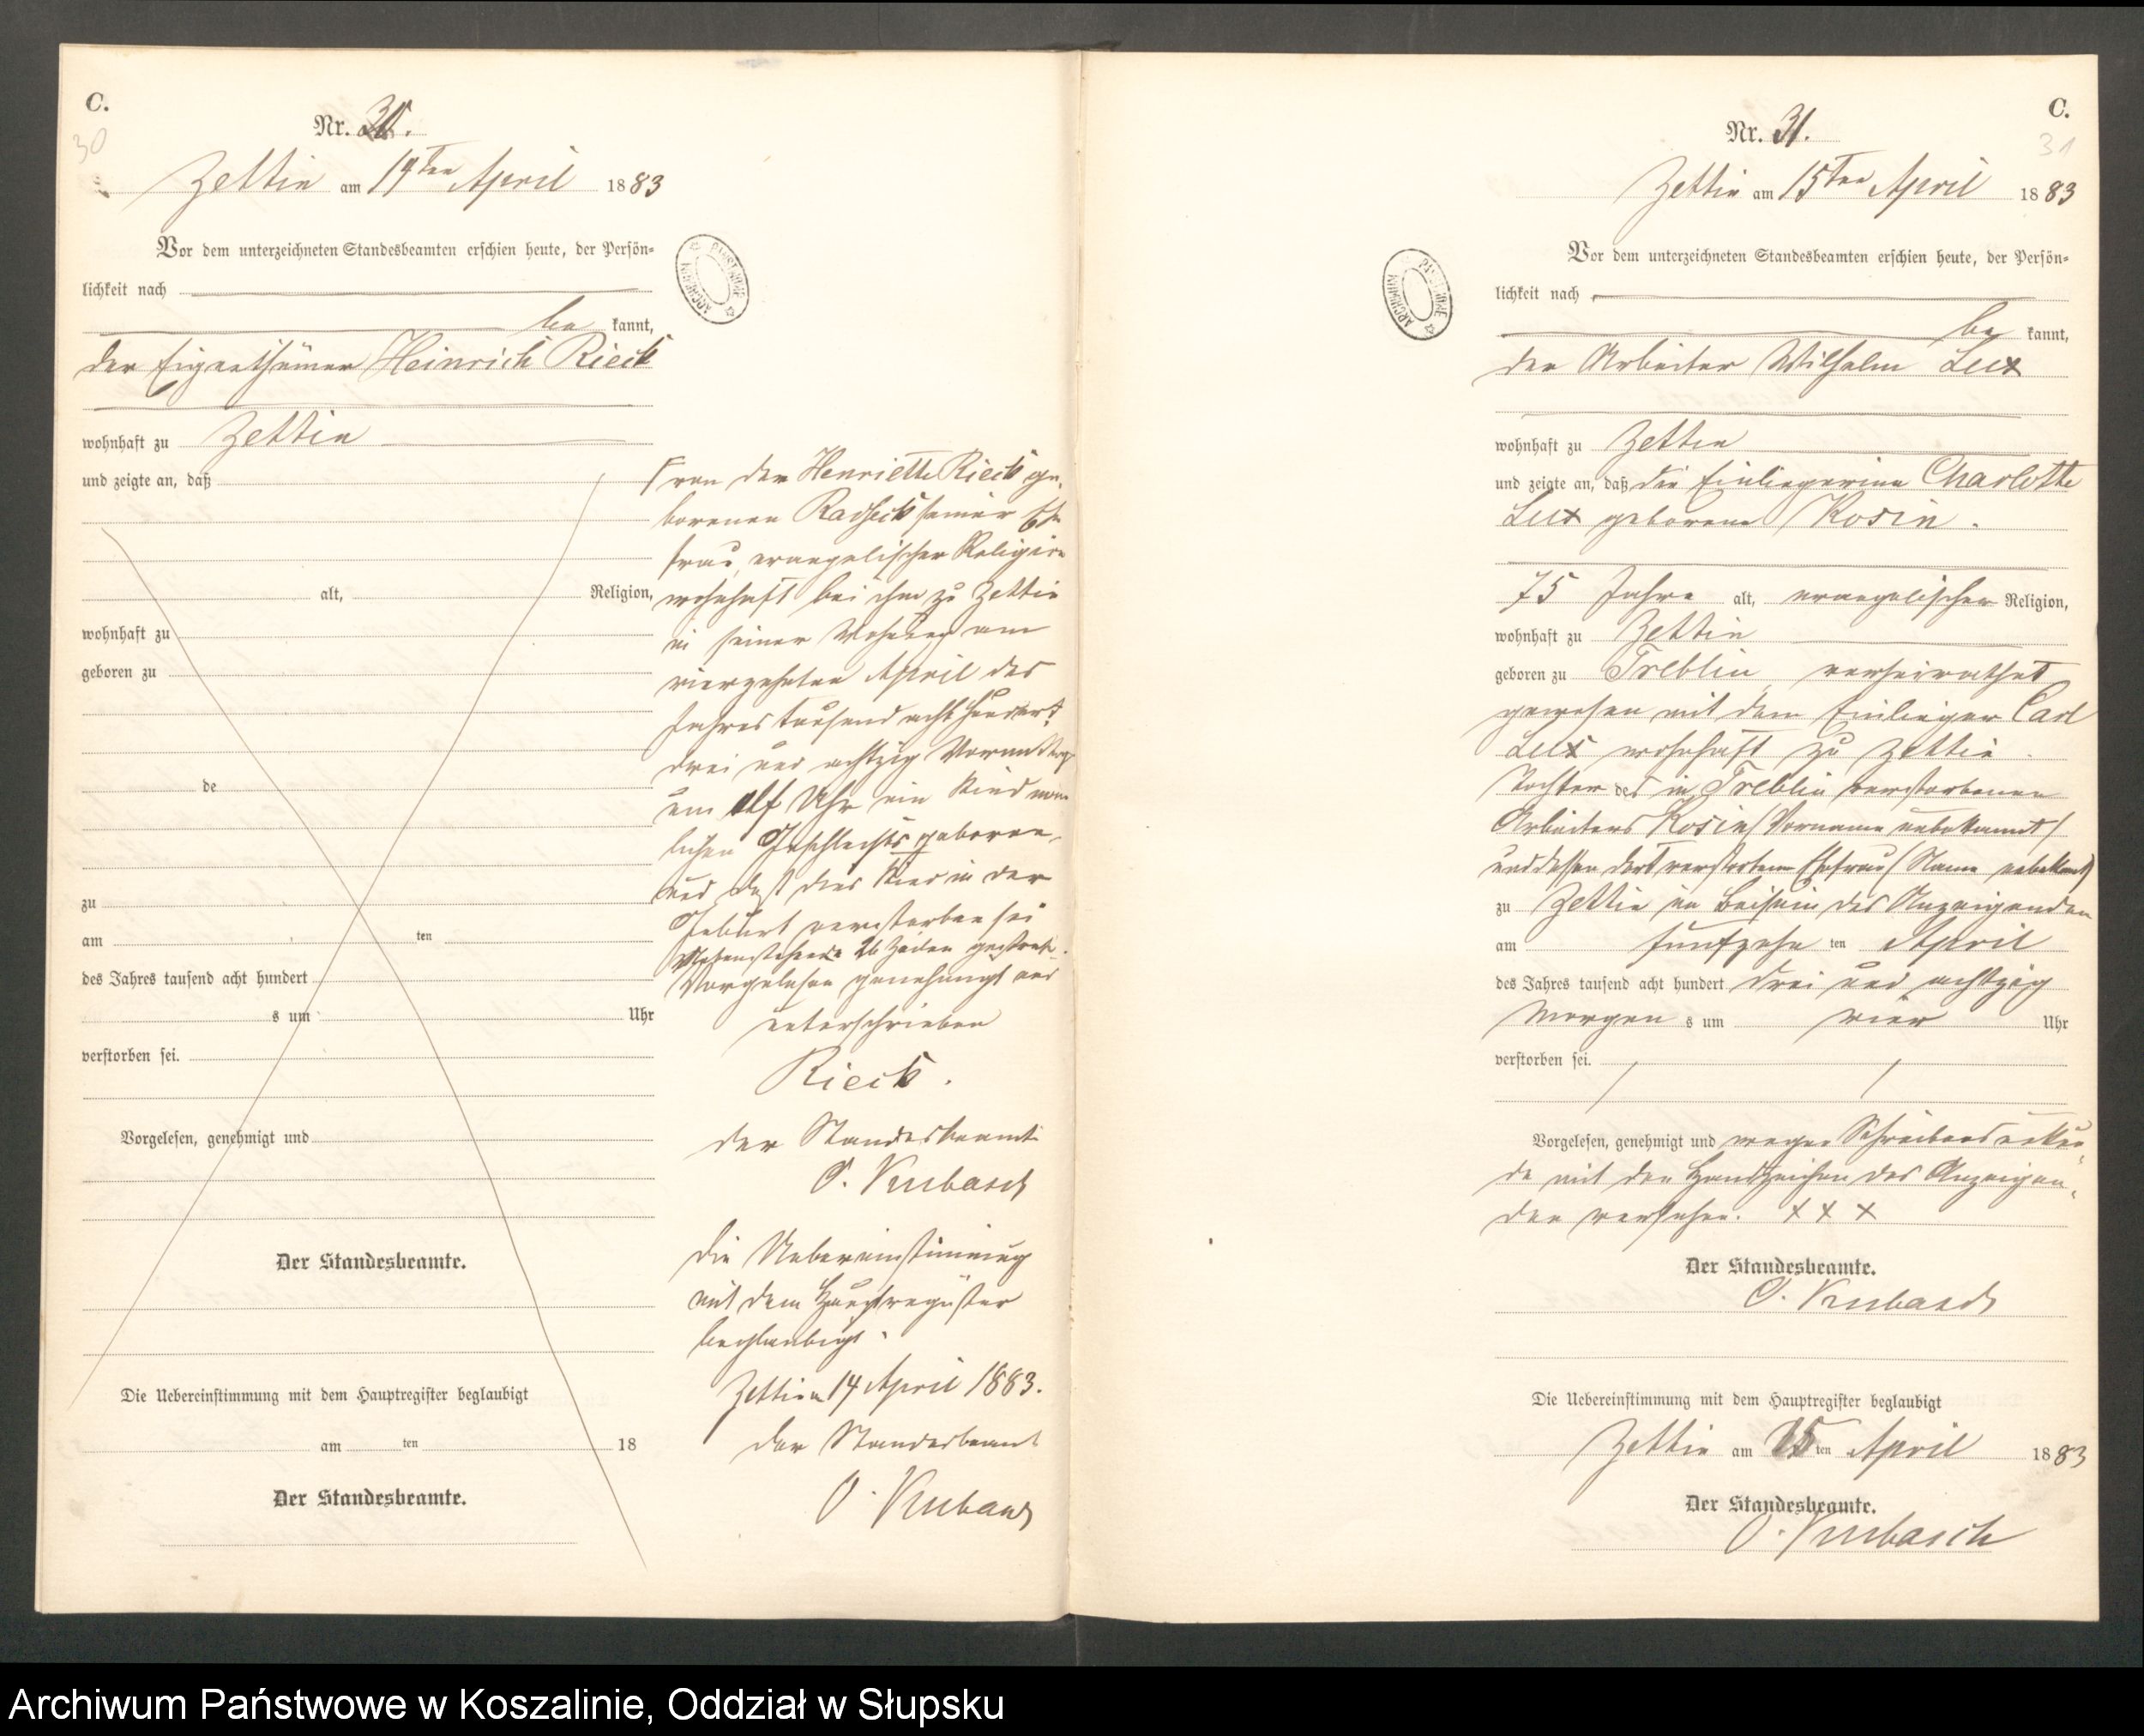 C.
30
Nr. 30.
Zettin am 14ten April 1883
Vor dem unterzeichneten Standesbeamten erschien heute, der Persön-
lichkeit nach
be kannt,
der Eigenthümer Heinrich Rieck
wohnhaft zu Zettin
und zeigte an, daß
alt, Religion,
wohnhaft zu
geboren zu
de
zu
am ten
des Jahres tausend acht hundert
s um Uhr
verstorben sei.
Vorgelesen, genehmigt und
Der Standesbeamte.
Die Uebereinstimmung mit dem Hauptregister beglaubigt
am ten 18
Der Standesbeamte.
von der Henriette Rieck ge-
borenen Radseck seiner Ehe
frau, evangelischer Religion
wohnhaft bei ihm zu Zettin
in seiner Wohnung am
vierzehnten April des
Jahres tausend acht hundert
drei und achtzig Vormittags
um elf Uhr ein Kind männ
lichen Geschlechts geboren,
und daß dies Kind in der
Geburt verstorben sei
Nebenstehende 26 Zeilen gestrich.
Vorgelesen genehmigt und
unterschrieben
Rieck.
Der Standesbeamte
O. Kubasch
Die Uebereinstimmung
mit dem Hauptregister
beglaubigt.
Zettin 14 April 1883.
Der Standesbeamt
O. Kubasch
ARCHIWUM PAŃSTWOWE
C.
31
Nr. 31.
Zettin am 15ten April 1883
Vor dem unterzeichneten Standesbeamten erschien heute, der Persön-
lichkeit nach
be kannt,
der Arbeiter Wilhelm Lux
wohnhaft zu Zettin
und zeigte an, daß die Einliegerinn Charlotte
Lux geborene Kosin.
75 Jahre alt, evangelischer Religion,
wohnhaft zu Zettin
geboren zu Treblin, verheirathet
gewesen mit dem Einlieger Carl
Lux wohnhaft zu Zettin.
Tochter des in Treblin verstorbenen
Arbeiters Kosin / Vorname unbekannt /
und dessen dort verstorbene Ehefrau / Name unbekannt /
zu Zettin in Beisein des Anzeigenden
am fünfzehn ten April
des Jahres tausend acht hundert drei und achtzig
Morgen s um vier Uhr
verstorben sei.
Vorgelesen, genehmigt und wegen Schreibensunkun-
de mit den Handzeichen des Anzeigen-
den versehen. X X X
Der Standesbeamte.
O. Kubasch
Die Uebereinstimmung mit dem Hauptregister beglaubigt
Zettin am 15ten April 1883
Der Standesbeamte.
O. Kubasch
ARCHIWUM PAŃSTWOWE
Archiwum Państwowe w Koszalinie, Oddział w Słupsku